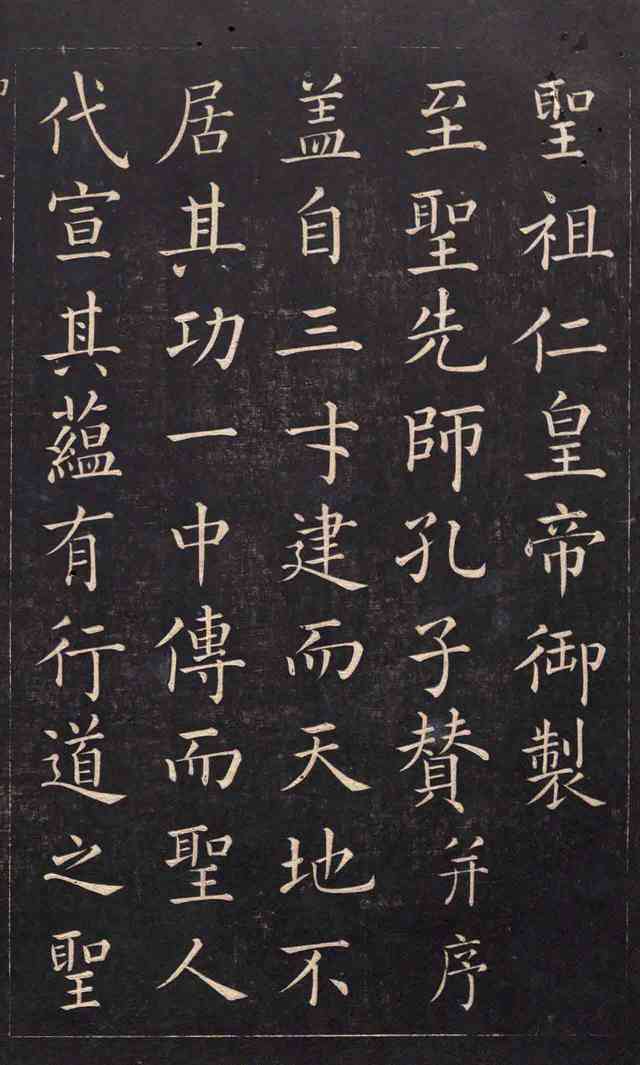 聖祖仁皇帝御製
至聖先師孔子賛并序
盖自三才建而天地不
居其功一中傳而聖人
代宣其藴有行道之聖